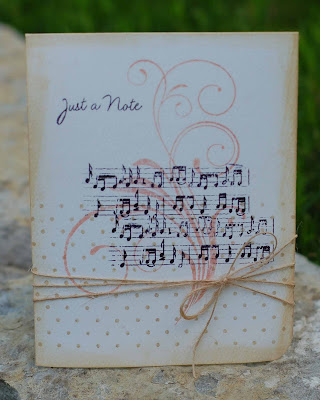 Just a Note